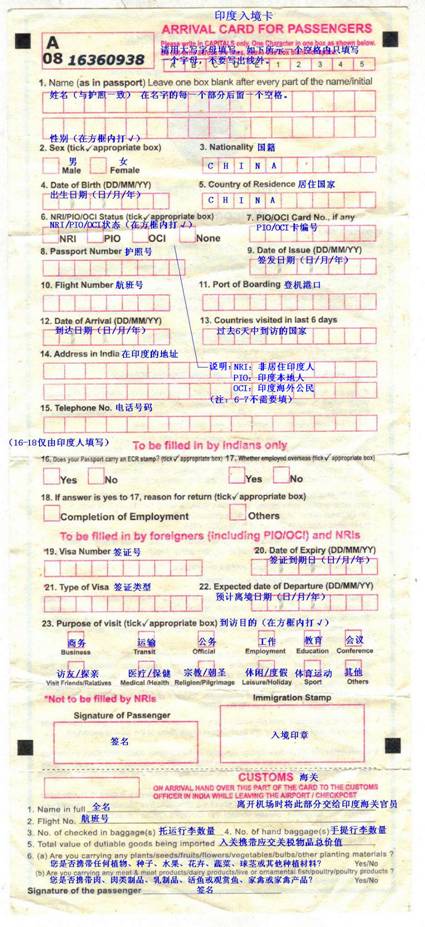 印度入境卡
ARRIVAL CARD FOR PASSENGERS
Please write in CAPITALS only. One Character in one box as shown below.
请用大写字母填写，如下所示，一个空格内只填写
一个字母，不要写出线外。
A
08 16360938
A B C D E 1 2 3 4 5
1. Name (as in passport) Leave one box blank after every part of the name/initial
姓名（与护照一致） 在名字的每一个部分后留一个空格。
性别（在方框内打√）
2. Sex (tick√appropriate box) 3. Nationality 国籍
男 女
Male Female
C H I N A
4. Date of Birth (DD/MM/YY) 5. Country of Residence 居住国家
出生日期（日/月/年）
C H I N A
6. NRI/PIO/OCI Status (tick√appropriate box) 7. PIO/OCI Card No., if any
NRI/PIO/OCI状态（在方框内打√） PIO/OCI卡编号
NRI PIO OCI None
8. Passport Number 护照号 9. Date of Issue (DD/MM/YY)
签发日期（日/月/年）
10. Flight Number 航班号 11. Port of Boarding 登机港口
12. Date of Arrival (DD/MM/YY) 13. Countries visited in last 6 days
到达日期（日/月/年） 过去6天中到访的国家
14. Address in India 在印度的地址
说明：NRI：非居住印度人
PIO：印度本地人
OCI：印度海外公民
（注：6-7不需要填）
15. Telephone No. 电话号码
(16-18仅由印度人填写)
To be filled in by Indians only
16. Does your Passport carry an ECR stamp? (tick√appropriate box) 17. Whether employed overseas (tick√appropriate box)
Yes No Yes No
18. If answer is yes to 17, reason for return (tick√appropriate box)
Completion of Employment Others
To be filled in by foreigners (including PIO/OCI) and NRIs
*19. Visa Number 签证号 *20. Date of Expiry (DD/MM/YY)
签证到期日（日/月/年）
*21. Type of Visa 签证类型 22. Expected date of Departure (DD/MM/YY)
预计离境日期（日/月/年）
23. Purpose of visit (tick√appropriate box) 到访目的（在方框内打√）
商务 运输 公务 工作 教育 会议
Business Transit Official Employment Education Conference
访友/探亲 医疗/保健 宗教/朝圣 休闲/度假 体育运动 其他
Visit Friends/Relatives Medical /Health Religion/Pilgrimage Leisure/Holiday Sport Others
*Not to be filled by NRIs Immigration Stamp
Signature of Passenger
签名 入境印章
CUSTOMS 海关
ON ARRIVAL HAND OVER THIS PART OF THE CARD TO THE CUSTOMS
OFFICER IN INDIA WHILE LEAVING THE AIRPORT / CHECKPOST
离开机场时将此部分交给印度海关官员
1. Name in full 全名
2. Flight No. 航班号
3. No. of checked in baggage(s) 托运行李数量 4. No. of hand baggage(s) 手提行李数量
5. Total value of dutiable goods being imported 入关携带应交关税物品总价值
6. (a) Are you carrying any plants/seeds/fruits/flowers/vegetables/bulbs/other planting materials ?
您是否携带任何植物、种子、水果、花卉、蔬菜、球茎或其他种植材料？ Yes/No
(b) Are you carrying any meat & meat products/dairy products/live or ornamental fish/poultry/poultry products ?
您是否携带肉、肉类制品、乳制品、活鱼或观赏鱼、家禽或家禽产品？ Yes/No
Signature of the passenger 签名